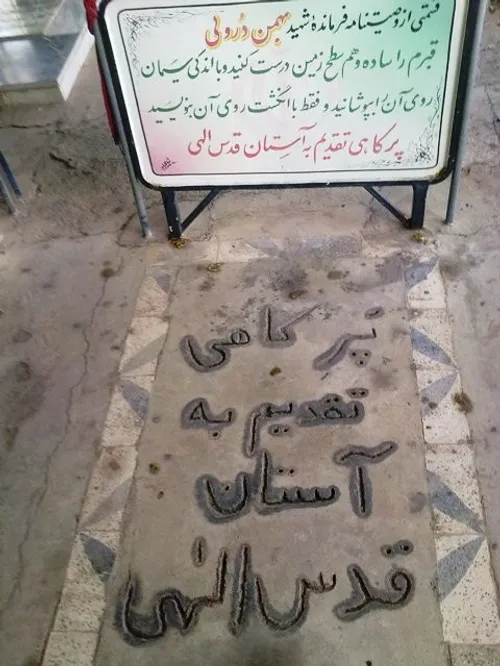 قسمتی از وصیتنامه فرمانده شهید بهمن دُرولی
قبرم را ساده و هم سطح زمین درست کنید و با اندکی سیمان
روی آن را بپوشانید و فقط با انگشت روی آن بنویسید
پر کاهی تقدیم به آستان قدس الهی
پر کاهی
تقدیم به
آستان
قدس الهی